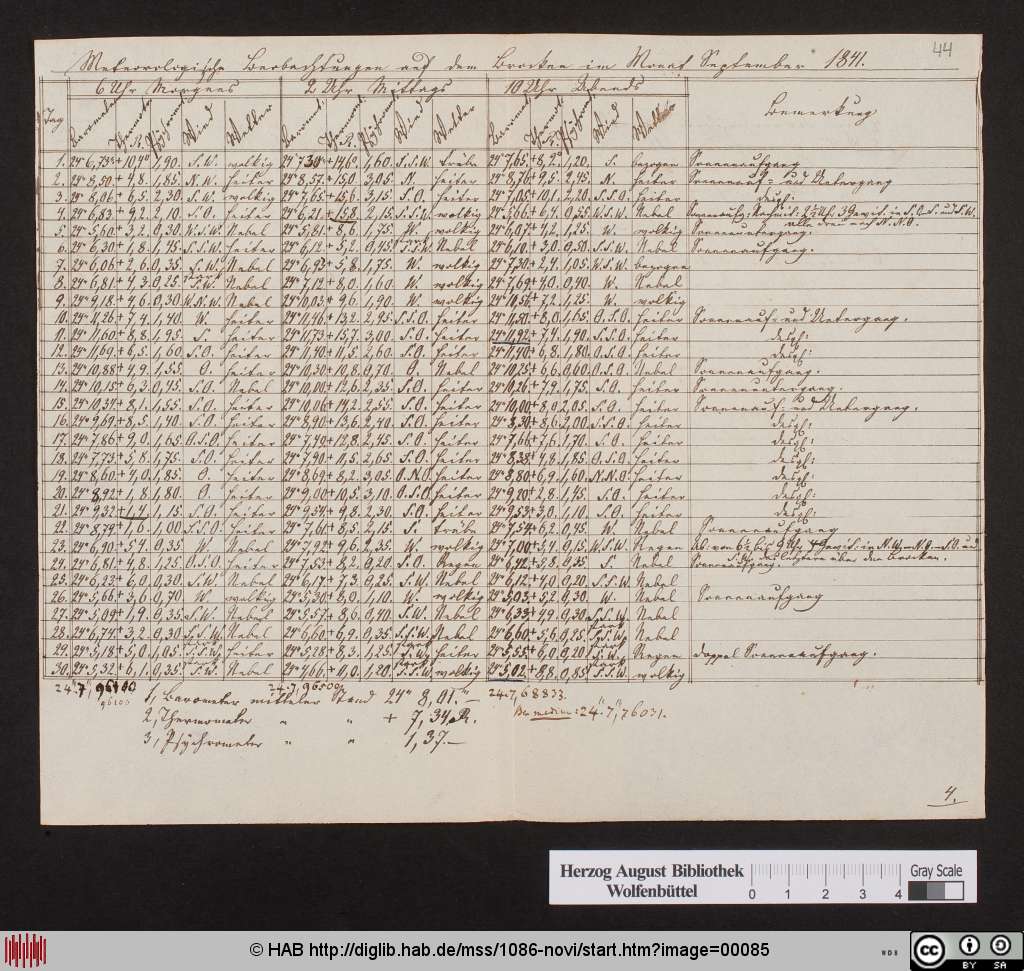 44
Meteorologische Beobachtungen auf dem Brocken im Monat September 1841.
Tag 6 Uhr Morgens 2 Uhr Mittags 10 Uhr Abends Bemerkung
Baromet. Thermom. Psychrom. Wind Wetter Baromet. Thermom. Psychrom. Wind Wetter Baromet. Thermom. Psychrom. Wind Wetter
1. S.W. wolkig 1,60. S.S.W. trübe 24" 7,65. + 8,2. 1,20. S. bezogen Sonnenaufgang
2. 24" 8,50. + 4,8. 1,85. N.W. heiter 24" 8,57. + 15,0. 3,05. N. heiter 24" 8,76. + 9,5. 2,45. N. heiter Sonnenauf- und Untergang
3. 24" 8,06. + 6,5. 2,30. S.W. wolkig 24" 7,65. + 15,6. 3,15. S.O. heiter 24" 7,05. + 10,1. 2,20. S.S.O. heiter desgl:
4. 24" 6,83. + 9,2. 2,10. S.O. heiter 24" 6,21. + 15,8. 2,15. S.S.W. wolkig 24" 5,66. + 6,4. 0,55. S.W.S.W. Nebel
5. 24" 5,60. + 3,2. 0,30. W.S.W. Nebel 24" 5,81. + 8,6. 1,75. W. wolkig 24" 6,07. + 4,2. 1,25. W. wolkig Sonnenuntergang.
6. 24" 6,30. + 1,8. 1,45. S.S.W. heiter 24" 6,12. + 5,2. 0,45. S.S.W. Nebel 24" 6,10. + 3,0. 0,50. S.S.W. Nebel Sonnenaufgang.
7. 24" 6,06. + 2,6. 0,35. S.W. Nebel 24" 6,93. + 5,8. 1,75. W. wolkig 24" 7,30. + 2,4. 1,05. W.S.W. bezogen
8. 24" 6,81. + 4,3. 0,25. S.W. Nebel 24" 7,12. + 8,0. 1,60. W. wolkig 24" 7,69. + 4,0. 0,40. W. Nebel
9. 24" 9,18. + 4,6. 0,30. W.N.W. Nebel 24" 10,03. + 9,6. 1,90. W. wolkig 24" 10,56. + 7,2. 1,25. W. wolkig
10. 24" 11,26. + 7,4. 1,40. W. heiter 24" 11,46. + 13,2. 2,95. S.S.O. heiter 24" 11,50. + 8,0. 1,65. O.S.O. heiter Sonnenauf- und Untergang.
11. 24" 11,60. + 8,8. 1,95. S. heiter 24" 11,73. + 15,7. 3,00. S.O. heiter 24" 11,92. + 7,4. 1,90. S.S.O. heiter desgl:
12. 24" 11,69. + 6,5. 1,60. S.O. heiter 24" 11,40. + 11,5. 2,60. S.O. heiter 24" 11,40. + 6,8. 1,80. O.S.O. heiter desgl:
13. 24" 10,88. + 4,9. 1,55. O. heiter 24" 10,30. + 10,8. 0,70. O. Nebel 24" 10,25. + 6,6. 0,60. O.S.O. Nebel Sonnenaufgang.
14. 24" 10,15. + 6,3. 0,45. S.O. Nebel 24" 10,00. + 12,6. 2,35. S.O. heiter 24" 10,26. + 7,9. 1,75. S.O. heiter Sonnenuntergang.
15. 24" 10,34. + 8,1. 1,55. S.O. heiter 24" 10,06. + 14,2. 2,55. S.O. heiter 24" 10,00. + 8,0. 2,05. S.O. heiter Sonnenauf- und Untergang.
16. 24" 9,69. + 8,5. 1,40. S.O. heiter 24" 8,90. + 13,6. 2,40. S.O. heiter 24" 8,30. + 8,6. 2,00. S.S.O. heiter desgl:
17. 24" 7,86. + 9,0. 1,65. O.S.O. heiter 24" 7,40. + 12,8. 2,45. S.O. heiter 24" 7,66. + 7,6. 1,70. S.O. heiter desgl:
18. 24" 7,73. + 5,8. 1,75. S.O. heiter 24" 7,90. + 11,5. 2,65. S.O. heiter 24" 8,38. + 4,8. 1,85. O.S.O. heiter desgl:
19. 24" 8,60. + 4,0. 1,85. O. heiter 24" 8,69. + 8,2. 3,05. O.N.O. heiter 24" 8,80. + 6,9. 1,60. N.N.O. heiter desgl:
20. 24" 8,92. + 1,8. 1,80. O. heiter 24" 9,00. + 10,5. 3,10. O.S.O. heiter 24" 9,20. + 2,8. 1,75. S.O. heiter desgl:
21. 24" 9,32. + 1,4. 1,15. S.O. heiter 24" 9,54. + 9,8. 2,30. S.O. heiter 24" 9,53. + 3,0. 1,10. S.O. heiter desgl:
22. 24" 8,79. + 1,6. 1,00. S.S.O. heiter 24" 7,61. + 8,5. 2,15. S. trübe 24" 7,54. + 6,2. 0,45. W. Nebel Sonnenaufgang
23. 24" 6,90. + 5,4. 0,35. W. Nebel 24" 7,92. + 9,6. 2,35. W. wolkig 24" 7,00. + 5,4. 0,15. W.S.W. Regen
24. 24" 6,81. + 4,8. 1,25. O.S.O. heiter 24" 7,53. + 8,2. 0,20. S.O. Regen 24" 6,42. + 5,8. 0,35. S. Nebel Sonnenaufgang.
25. 24" 6,22. + 6,0. 0,30. S.W. Nebel 24" 6,17. + 7,3. 0,25. S.W. Nebel 24" 6,12. + 4,0. 0,20. S.S.W. Nebel
26. 24" 5,66. + 3,6. 0,70. W. wolkig 24" 5,30. + 8,0. 1,10. W. wolkig 24" 5,03. + 5,2. 0,30. W. Nebel Sonnenaufgang
27. 24" 5,09. + 1,9. 0,35. S.W. Nebel 24" 5,57. + 8,6. 0,40. S.W. Nebel 24" 6,33. + 4,9. 0,30. S.S.W. Nebel
28. 24" 6,74. + 3,2. 0,30. S.S.W. Nebel 24" 6,60. + 6,9. 0,35. S.S.W. Nebel 24" 6,60. + 5,6. 0,25. S.S.W. Nebel
29. 24" 5,18. + 5,0. 1,05. S.S.W. heiter 24" 5,28. + 8,3. 1,25. S.W. heiter 24" 5,55. + 6,0. 0,20. S.W. Regen doppel Sonnenaufgang.
30. 24" 5,32. + 6,1. 0,35. S.W. Nebel 24" 4,66. + 11,0. 1,20. S.S.W. wolkig 24" 5,02. + 8,8. 0,85. S.S.W. wolkig
24." 7,"96100 24. 7, 96500 24. 7, 68833.
96100
1, Barometer mittlerer Stand 24" 8,01."
2, Thermometer " " + 7,34 R.
3, Psychrometer " " 1,37.
medium: 24." 7,"76031.
4.
Herzog August Bibliothek
Wolfenbüttel
0 1 2 3 4
Gray Scale
© HAB http://diglib.hab.de/mss/1086-novi/start.htm?image=00085
WDB
cc BY SA